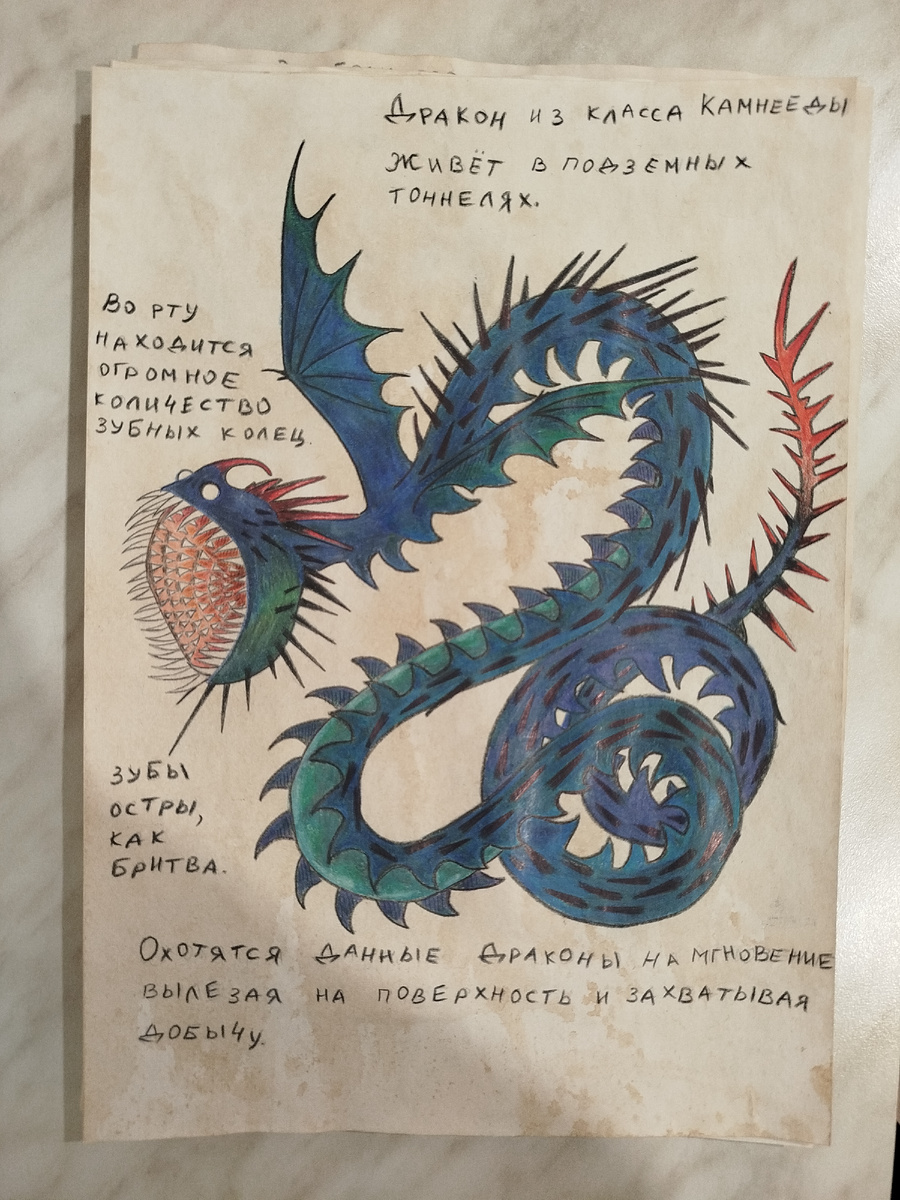 Дракон из класса Камнееды
живёт в подземных
тоннелях.
Во рту
находится
огромное
количество
зубных колец.
Зубы
остры,
как
бритва.
Охотятся данные драконы на мгновение
вылезая на поверхность и захватывая
добычу.